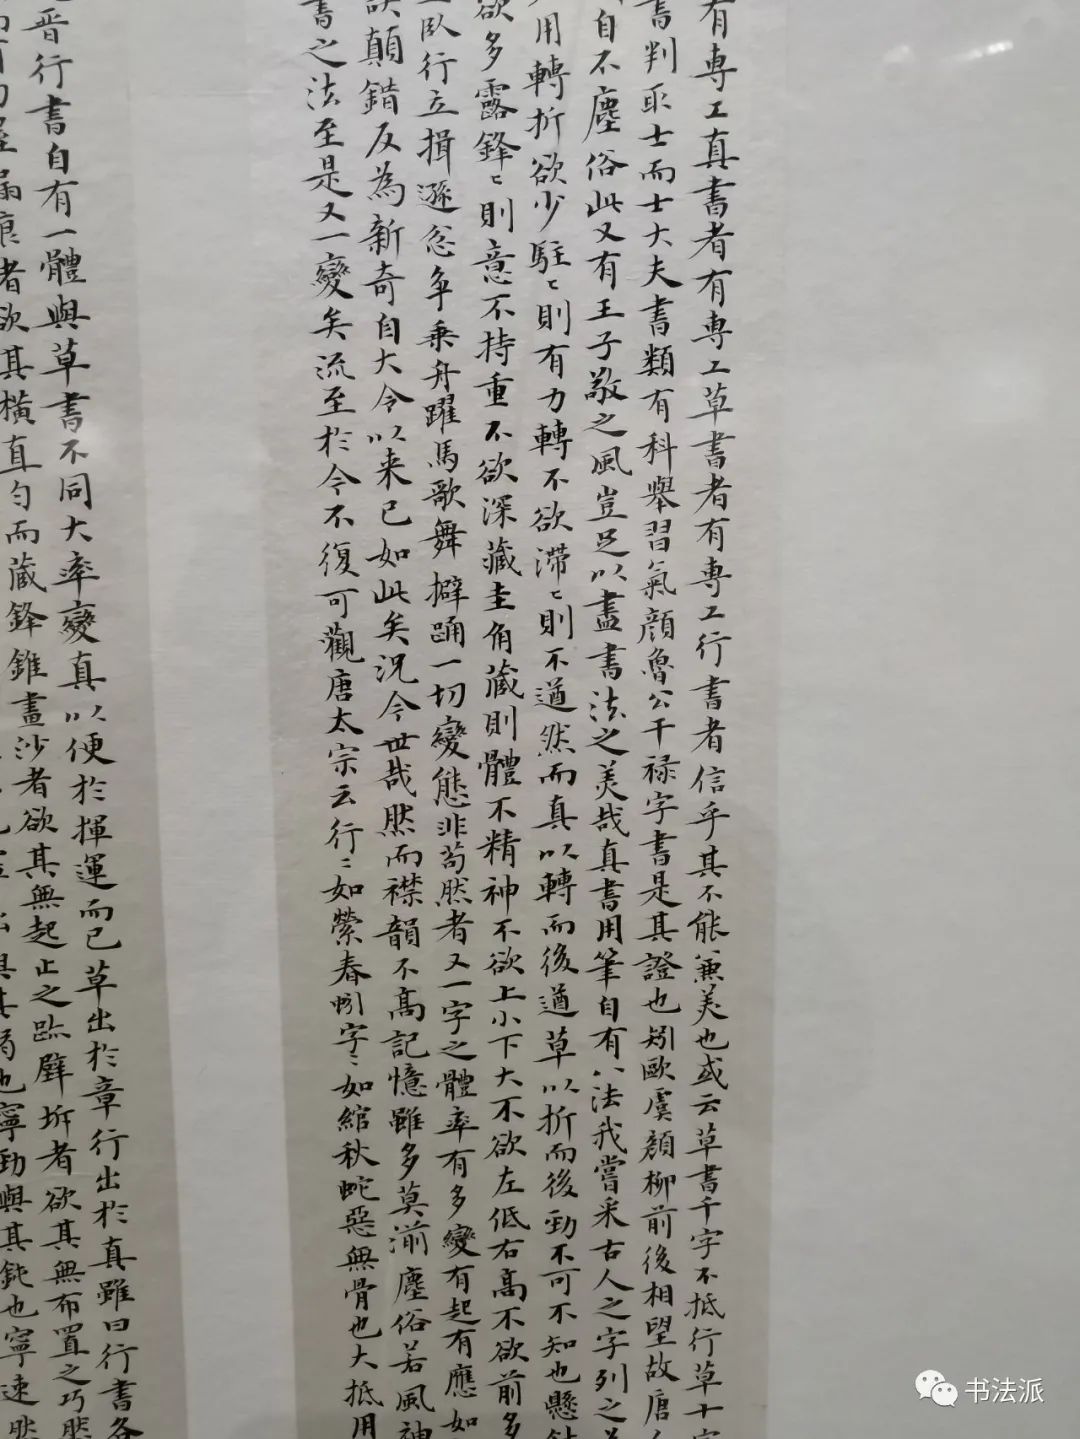 有專工真書者有專工草書者有專工行書者信乎其不能兼美也或云草書千字不抵行草十字
書判取士而士大夫書類有科舉習氣顏魯公干祿字書是其證也矧歐虞顏柳前後相望故唐人
自不塵俗此又有王子敬之風豈足以盡書法之美哉真書用筆自有八法我嘗采古人之字列之
用轉折欲少駐〻則有力轉不欲滯〻則不遒然而真以轉而後遒草以折而後勁不可不知也懸針
欲多露鋒〻則意不持重不欲深藏圭角藏則體不精神不欲上小下大不欲左低右高不欲前多
臥行立揖遜忿爭乗舟躍馬歌舞擗踊一切變態非苟然者又一字之體率有多變有起有應如
誤顛錯反為新奇自大令以来已如此矣況今世哉然而襟韻不高記憶雖多莫湔塵俗若風神
書之法至是又一變矣流至於今不復可觀唐太宗云行〻如縈春蚓字〻如綰秋蛇惡無骨也大抵用
晋行書自有一體與草書不同大率變真以便於揮運而已草出於章行出於真雖曰行書各
漏痕者欲其橫直勻而藏鋒錐畫沙者欲其無起止之跡壁坼者欲其無布置之巧然
也寧勁與其鈍也寧速
书法派